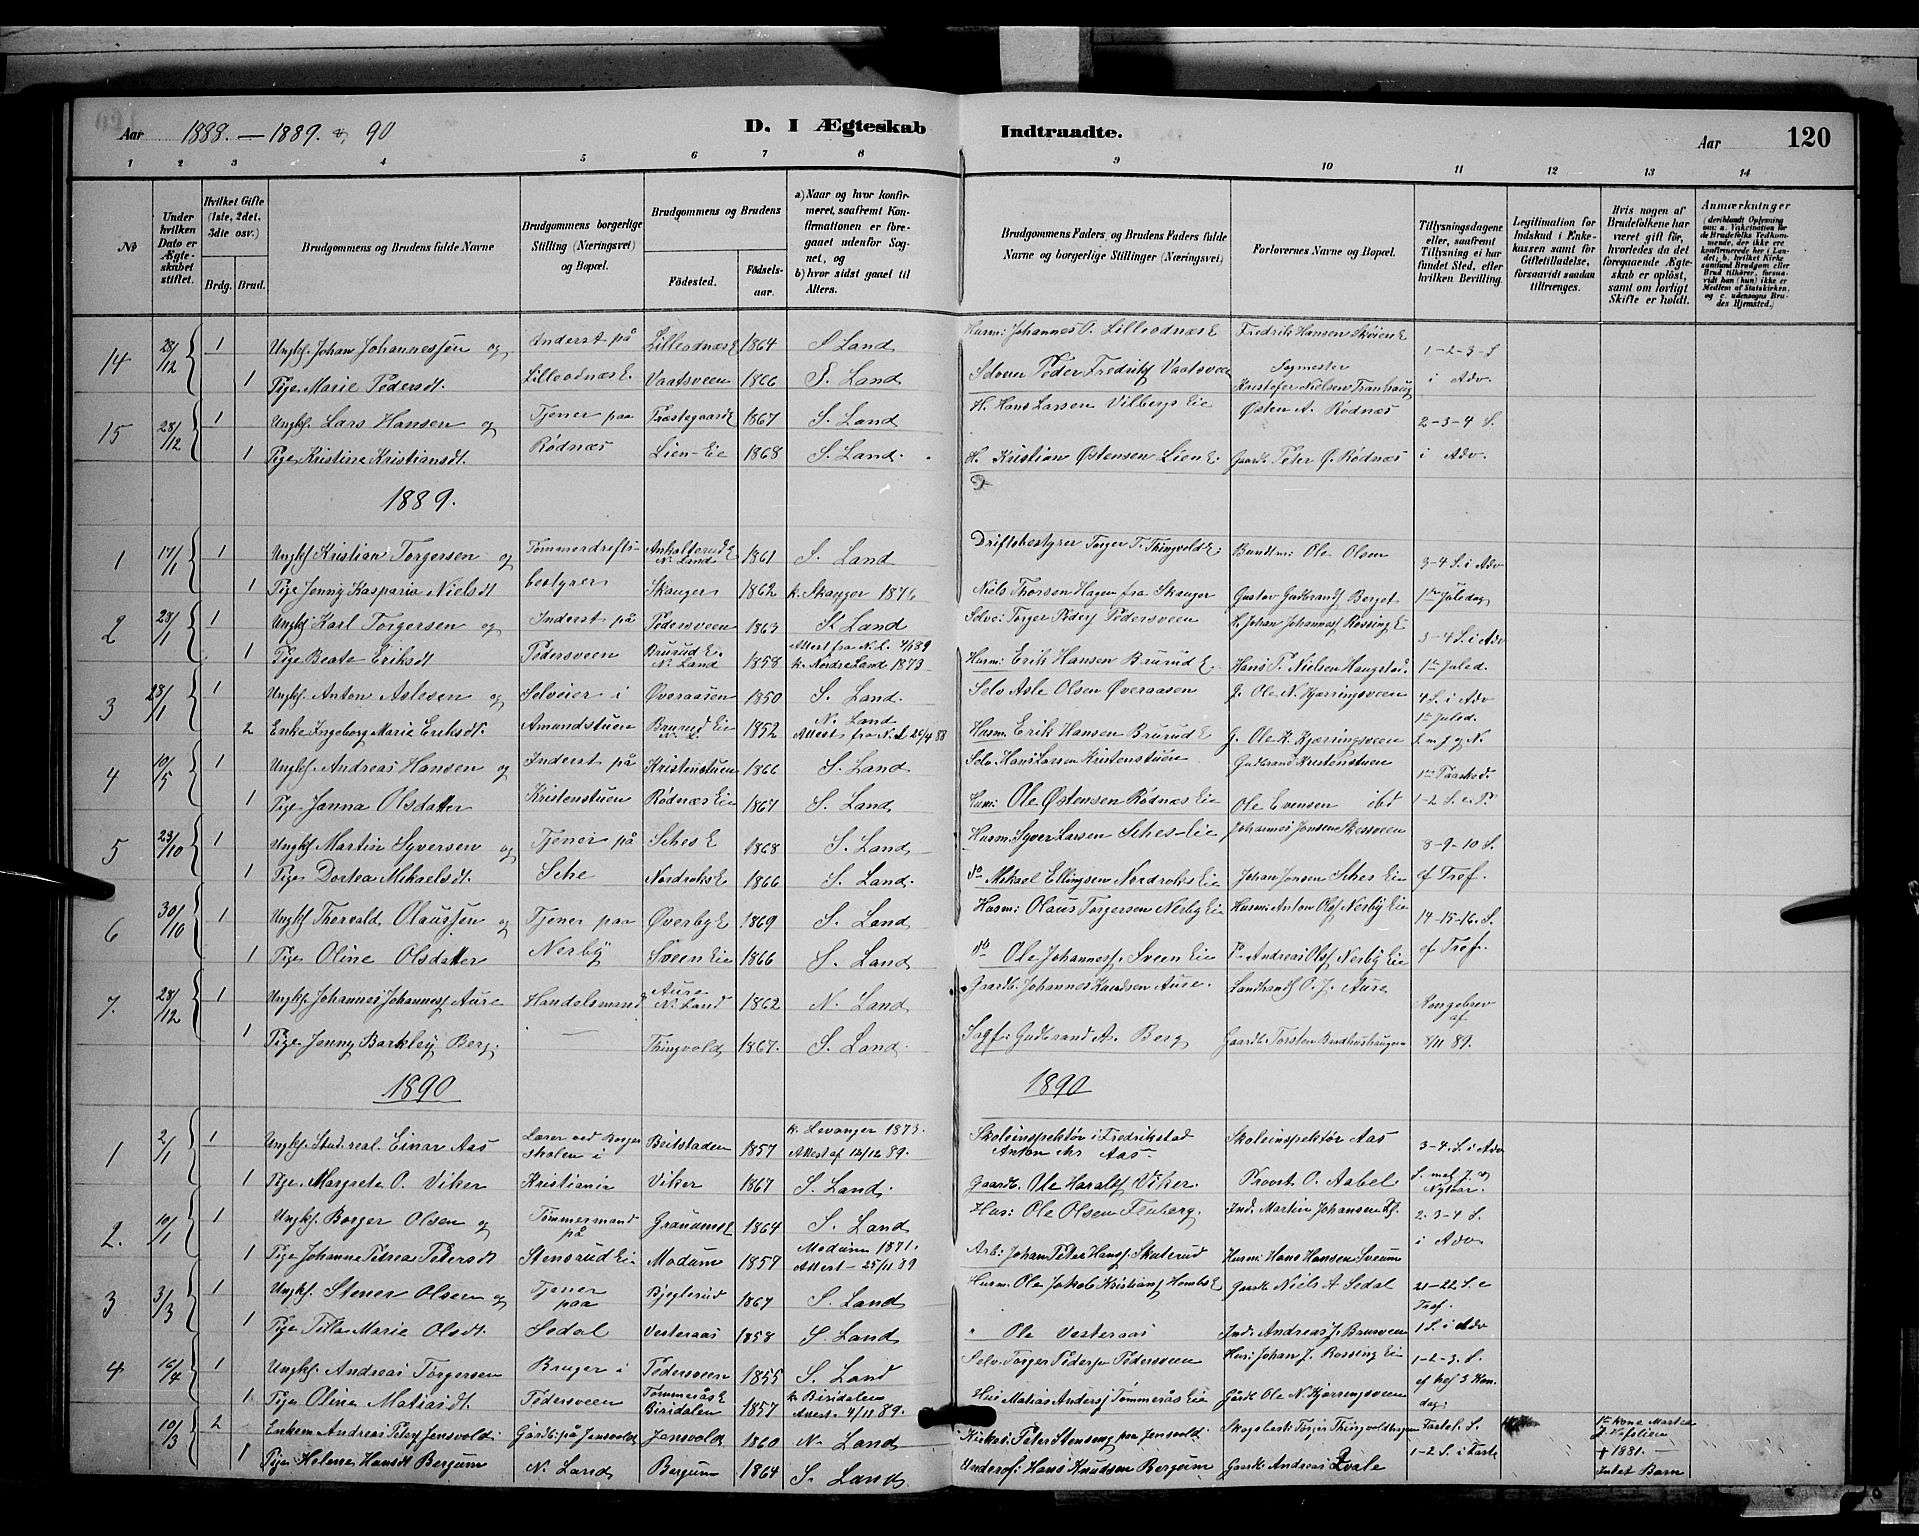 Aar 1888. — 1889. & 90
D. I Ægteskab Indtraadte.
Aar 120
1 2 3 4 5 6 7 8 9 10 11 12 13 14
No
Under hvilken Dato er Ægteskabet stiftet.
Hvilket Gifte (1ste, 2det, 3die osv.)
Brdg. Brud.
Brudgommens og Brudens fulde Navne
Brudgommens borgerlige Stilling (Næringsvei) og Bopæl.
Brudgommens og Brudens
Fødested. Fødsels-aar.
a) Naar og hvor konfirmeret, saafremt Konfirmationen er foregaaet udenfor Sognet, og
b) hvor sidst gaaet til Alters.
Brudgommens Faders og Brudens Faders fulde Navne og borgerlige Stillinger (Næringsvei)
Forlovernes Navne og Bopæl.
Tillysningsdagene eller, saafremt Tillysning ei har fundet Sted, efter hvilken Bevilling.
Legitimation for Indskud i Enkekassen samt for Giftetilladelse, forsaavidt saadan tiltrænges.
Hvis nogen af Brudefolkene har været gift før, hvorledes da det foregaaende Ægteskab er opløst, samt om lovligt Skifte er holdt.
Anmærkninger (deriblandt Oplysning om: a. Vakcination for de Brudefolks Vedkommende, der ikke ere konfirmerede her i Landet; b. hvilket Kirkesamfund Brudgom eller Brud tilhører, forsaavidt han (hun) ikke er Medlem af Statskirken, og c. udensogns Brudes Hjemsted.)
14 28/12 1 Ungkf. Johan Johannessen og Inderst på Lilleodnæs E 1864 S. Land Husm: Johannes O. Lilleodnæs E Fredrik Hansen Skøien E 1-2-3-S
1 Pige Marie Pedersdt. Lilleodnæs E. Vaatsveen 1866 S. Land Selveier Peder Fredriks. Vaatsveen Sagmester Kristofer Nielsen Tranhaug i Adv.
15 28/12 1 Ungkf. Lars Hansen og Tjener paa Præstegaards E 1867 S. Land H. Hans Larsen Vilbergs Eie Østen A. Rødnæs 2-3-4 S.
1 Pige Kristine Kristiansdt. Rødnæs Lien-Eie 1868 S. Land. H. Kristian Østensen Lien E. Gaardb. Peter Ø. Rødnæs i Adv.
1889.
1 17/1 1 Ungkf Kristian Torgersen og Tømmerdrifts- Ankolterud E N. Land 1861 S. Land Driftsbestyrer Torger T. Thingvold E. Bundtm: Ole Olsen 3-4 S. i Adv
1 Pige Jenny Kasparia Nielsdt bestyrer Skauger 1862 k. Skauger 1876 Niels Thorsen Hagen fra Skauger Gustav Gudbrands. Berget 1ste Juledag
2 28/1 1 Ungkf Karl Torgersen og Inderst på Pedersveen 1863 S. Land Selve: Torger Peders. Pedersveen H. Johan Johannes. Rossing E 3-4 S. i Adv
1 Pige Beate Eriksdt Pedersveen Brurud E. N. Land 1858 Attest fra N. L. 4/1 89 k. Nordre Land 1873 Husm: Erik Hansen Brurud E. Hans P. Nielsen Haugstad. 1ste Juled.
3 28/1 1 Ungkf. Anton Aslesen og Selveier i Øveraasen 1850 S. Land. Selv Asle Olsen Øveraasen G. Ole N. Kjærringsveen 4 S. i Adv
2 Enke Ingeborg Marie Eriksdt. Amundstuen Brurud Eie N. L. 1852 N. Land Attest fra N. L 26/4 88 Husm. Erik Hansen Brurud E. G. Ole N. Kjærringsveen 1ste Juled. S. m. J og N.
4 10/5 1 Ungkf. Andreas Hansen og Inderst på Kristenstuen 1866 S. Land Selv. Hans Larsen Kristenstuen Gudbrand Kristenstuen 1ste Paasked.
1 Pige Janna Olsdatter Kristenstuen Rødnæs Eie 1867 S. Land Husm: Ole Østensen Rødnæs Eie Ole Evensen ibd 1-2 S. e. P.
5 23/10 1 Ungkf. Martin Syversen og Tjener på Sches E 1868 S. Land Husm. Syver Larsen Sches-Eie Johannes Jonsen 8-9-10 S.
1 Pige Dortea Mikaelsdt. Sche Nordroks E 1866 S. Land. do Mikael Ellingsen Nordroks Eie Johan Jonsen Sches Eie ef Tref.
6 30/10 1 Ungkf Thorvald Olaussen og Tjener paa Øverby E 1869 S. Land Husm: Olaus Torgersen Nerby Eie Husm: Anton Ols. Nerby Eie 14-15-16. S.
1 Pige Oline Olsdatter Nerby Sveen Eie 1866 S. Land do Ole Johannes. Sveen Eie P. Andreas Ols. Nerby Eie ef Tref.
7. 28/12 1 Ungkf. Johannes Johannes. Aure Handelsmand Aure N. Land 1862 N. Land Gaardb. Johannes Knudsen Aure. Landhandl. O. J. Aure Kongebrev af
1 Pige Jenny Barkley Berg. — Thingvold 1867. S. Land. Sagf: Gudbrand A. Berg Gaardb. Torsten 8/11 89.
1890 1890
1 2/1 1 Ungkf. Stud. real. Einar Aas Lærer ved Borger- Beitstaden 1857 k. Levanger 1873. Attest af 12/12 89. Skoleinspektør i Fredrikstad Anton Chr Aas. Skoleinspektør Aas 3-4. S. i Adv
1 Pige Margrete O. Viker skolen i Kristiania Viker 1867 S. Land. Gaardb. Ole Haralds. Viker. Provst O. Aabel S. mel J. & Nytaar.
2. 10/1 1 Ungkf. Borger Olsen og Tømmermand på Granum E 1864 S. Land Hus: Ole Olsen Fenberg. Ind. Martin Johansen 2-3-4 S.
1 Pige Johanne Petrea Petersdt Stensrud Eie Modum 1857 Modum 1871. Attest — 25/11 89 Arb: Johan Peter Hans. Skuterud Husm: Hans Hansen Sveum i Adv
3 3/3 1 Ungkf. Stener Olsen og Tjener paa Bjeglerud 1867 S. Land Husm: Ole Jakob Kristians. Gaardb Niels A Sedal 21-22 S. e Tref.
1 Pige Pilla Marie Olsdt. Sedal Vesteraas 1858 S. Land " Ole Vesteraas Ind. Andreas J. Brusveen 1 S. i Adv
4 16/4 1 Ungkf. Andreas Torgersen Bruger i Pedersveen 1855 S. Land Selv. Torger Peders. Pedersveen Hus: Johan J. Rossing Eie 1-2-3. S.
1. Pige Oline Matiasdt. Pedersveen Tømmerås E Biridalen 1857 k. Biridalen Attest 4/11 89. Hus Matias Anders. Tømmerås Eie Gårdb Ole N. Kjærringsveen ef hel 3 Kon. dag.
10/3 2 Enkem Andreas Peters. Jensvold Gårdb: på Jensvold Jensvold 1860 N. Land Kirkes: Peter Stenseng paa Jensvold Skogbest: Torger Fastel. S. 1ste Kone Martea
1 Pige Helene Hansdt Bergum N. Land Bergum 1864 S. Land. Underof: Hans Knudsen Bergum Gaardb Andreas Kvale 1-2 S. i Faste † 1881. — Intet Barn